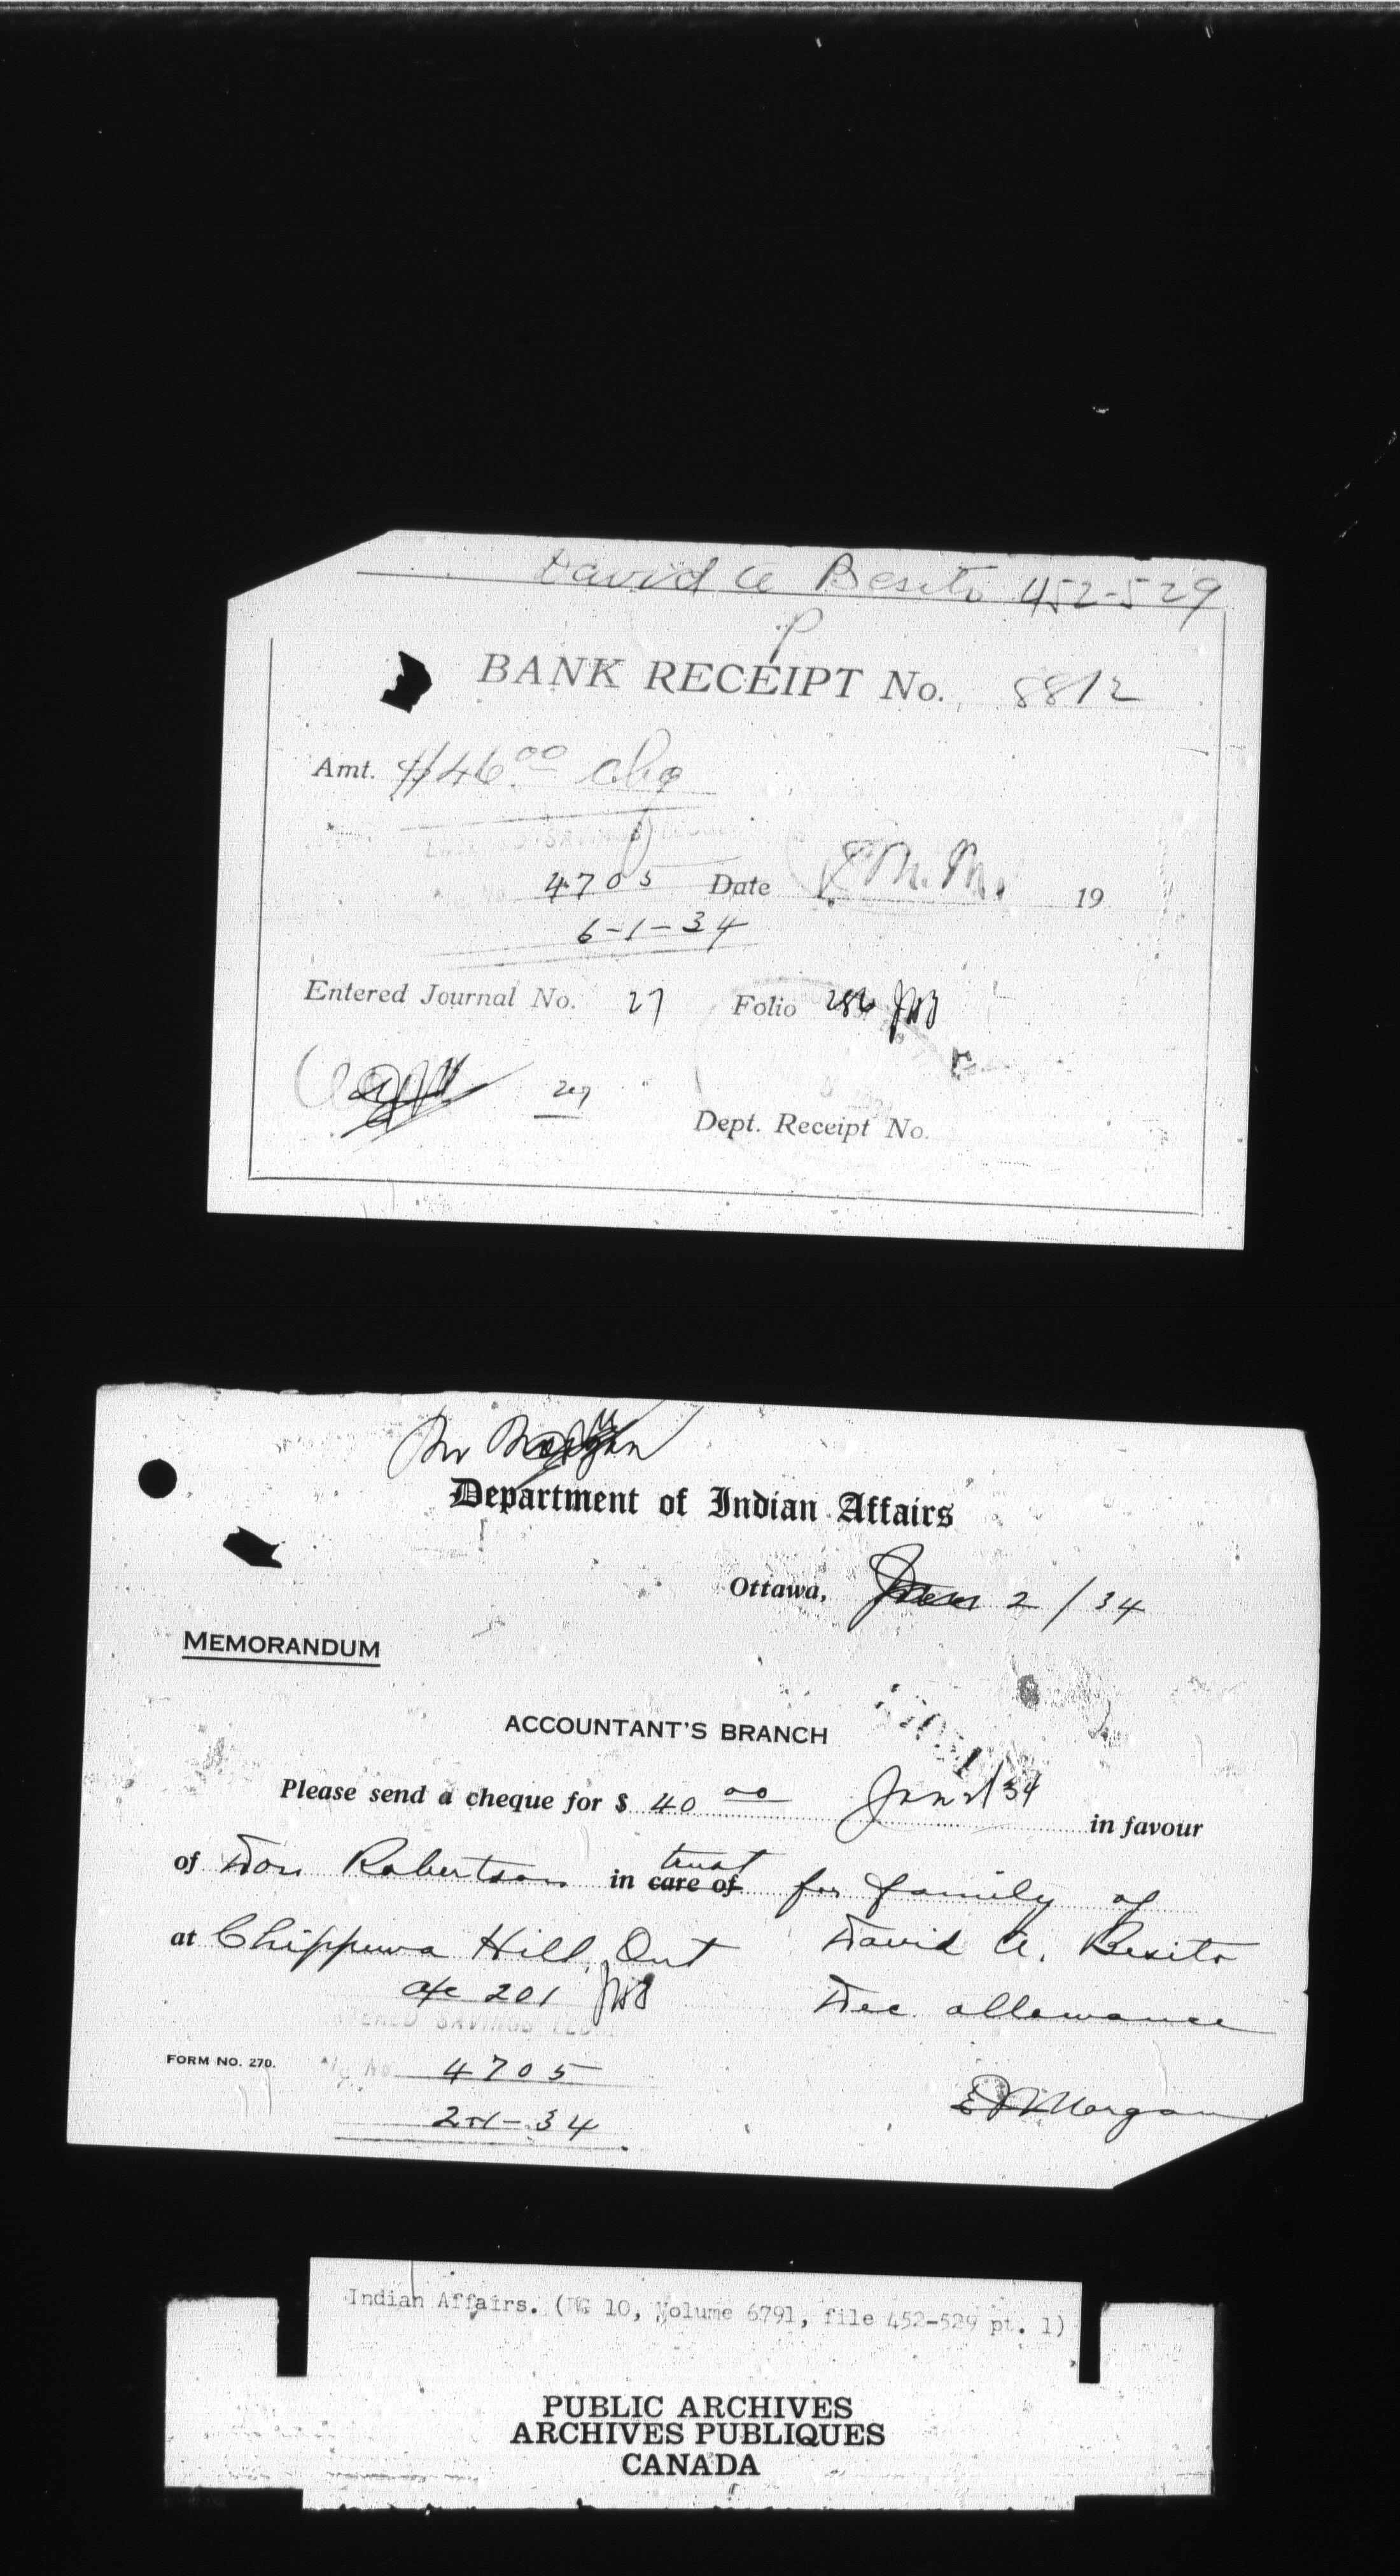 David A Besito 452-529
P
BANK RECEIPT No. 8812
Amt. $46.00 chq
ENTERED SAVINGS LEDGER
4705 Date 19
6-1-34
Entered Journal No. 27 Folio 286 JWB
Dept. Receipt No.
Mr Morgan
Department of Indian Affairs
Ottawa, Jan 2/34
MEMORANDUM
ACCOUNTANT'S BRANCH
Please send a cheque for $ 40 00 Jan 2/34 in favour
of Don Robertson in care of trust for family of
at Chippewa Hill, Ont David A. Besito
a/c 201 JWB Dec allowance
ENTERED SAVINGS LEDGER
FORM NO. 270. No 4705
2-1-34 Morgan
Indian Affairs. (RG 10, Volume 6791, file 452-529 pt. 1)
PUBLIC ARCHIVES
ARCHIVES PUBLIQUES
CANADA